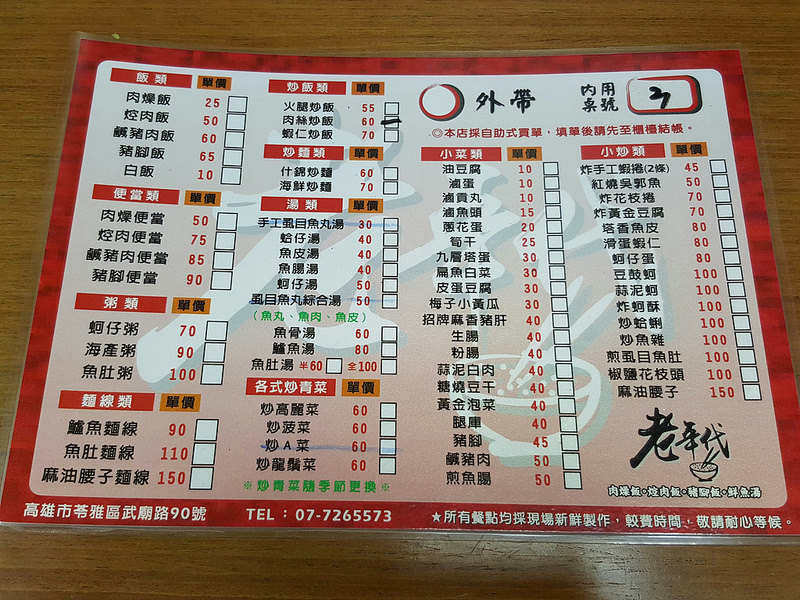 飯類 單價
肉燥飯 25
焢肉飯 50
鹹豬肉飯 60
豬腳飯 65
白飯 10
便當類 單價
肉燥便當 50
焢肉便當 75
鹹豬肉便當 85
豬腳便當 90
粥類 單價
蚵仔粥 70
海產粥 90
魚肚粥 100
麵線類 單價
鱸魚麵線 90
魚肚麵線 110
麻油腰子麵線 150
炒飯類 單價
火腿炒飯 55
肉絲炒飯 60
蝦仁炒飯 70
炒麵類 單價
什錦炒麵 60
海鮮炒麵 70
湯類 單價
手工虱目魚丸湯 30
蛤仔湯 40
魚皮湯 40
魚腸湯 40
蚵仔湯 50
虱目魚丸綜合湯 50
(魚丸、魚肉、魚皮)
魚骨湯 60
鱸魚湯 80
魚肚湯 半60 全100
各式炒青菜 單價
炒高麗菜 60
炒菠菜 60
炒A菜 60
炒龍鬚菜 60
※炒青菜隨季節更換※
外帶 內用桌號 3
◎本店採自助式買單，填單後請先至櫃檯結帳。
小菜類 單價
油豆腐 10
滷蛋 10
滷貢丸 10
滷魚頭 15
蔥花蛋 20
筍干 25
九層塔蛋 30
扁魚白菜 30
皮蛋豆腐 30
梅子小黃瓜 30
招牌麻香豬肝 40
生腸 40
粉腸 40
蒜泥白肉 40
糖燒豆干 40
黃金泡菜 40
腿庫 40
豬腳 45
鹹豬肉 50
煎魚腸 50
小炒類 單價
炸手工蝦捲(2條) 45
紅燒吳郭魚 50
炸花枝捲 70
炸黃金豆腐 70
塔香魚皮 80
滑蛋蝦仁 80
蚵仔蛋 80
豆鼓蚵 100
蒜泥蚵 100
炸蚵酥 100
炒蛤蜊 100
炒魚雜 100
煎虱目魚肚 100
椒鹽花枝頭 100
麻油腰子 150
老年代
肉燥飯●焢肉飯●豬腳飯●鮮魚湯
高雄市苓雅區武廟路90號 TEL：07-7265573 ★所有餐點均採現場新鮮製作，較費時間，敬請耐心等候。